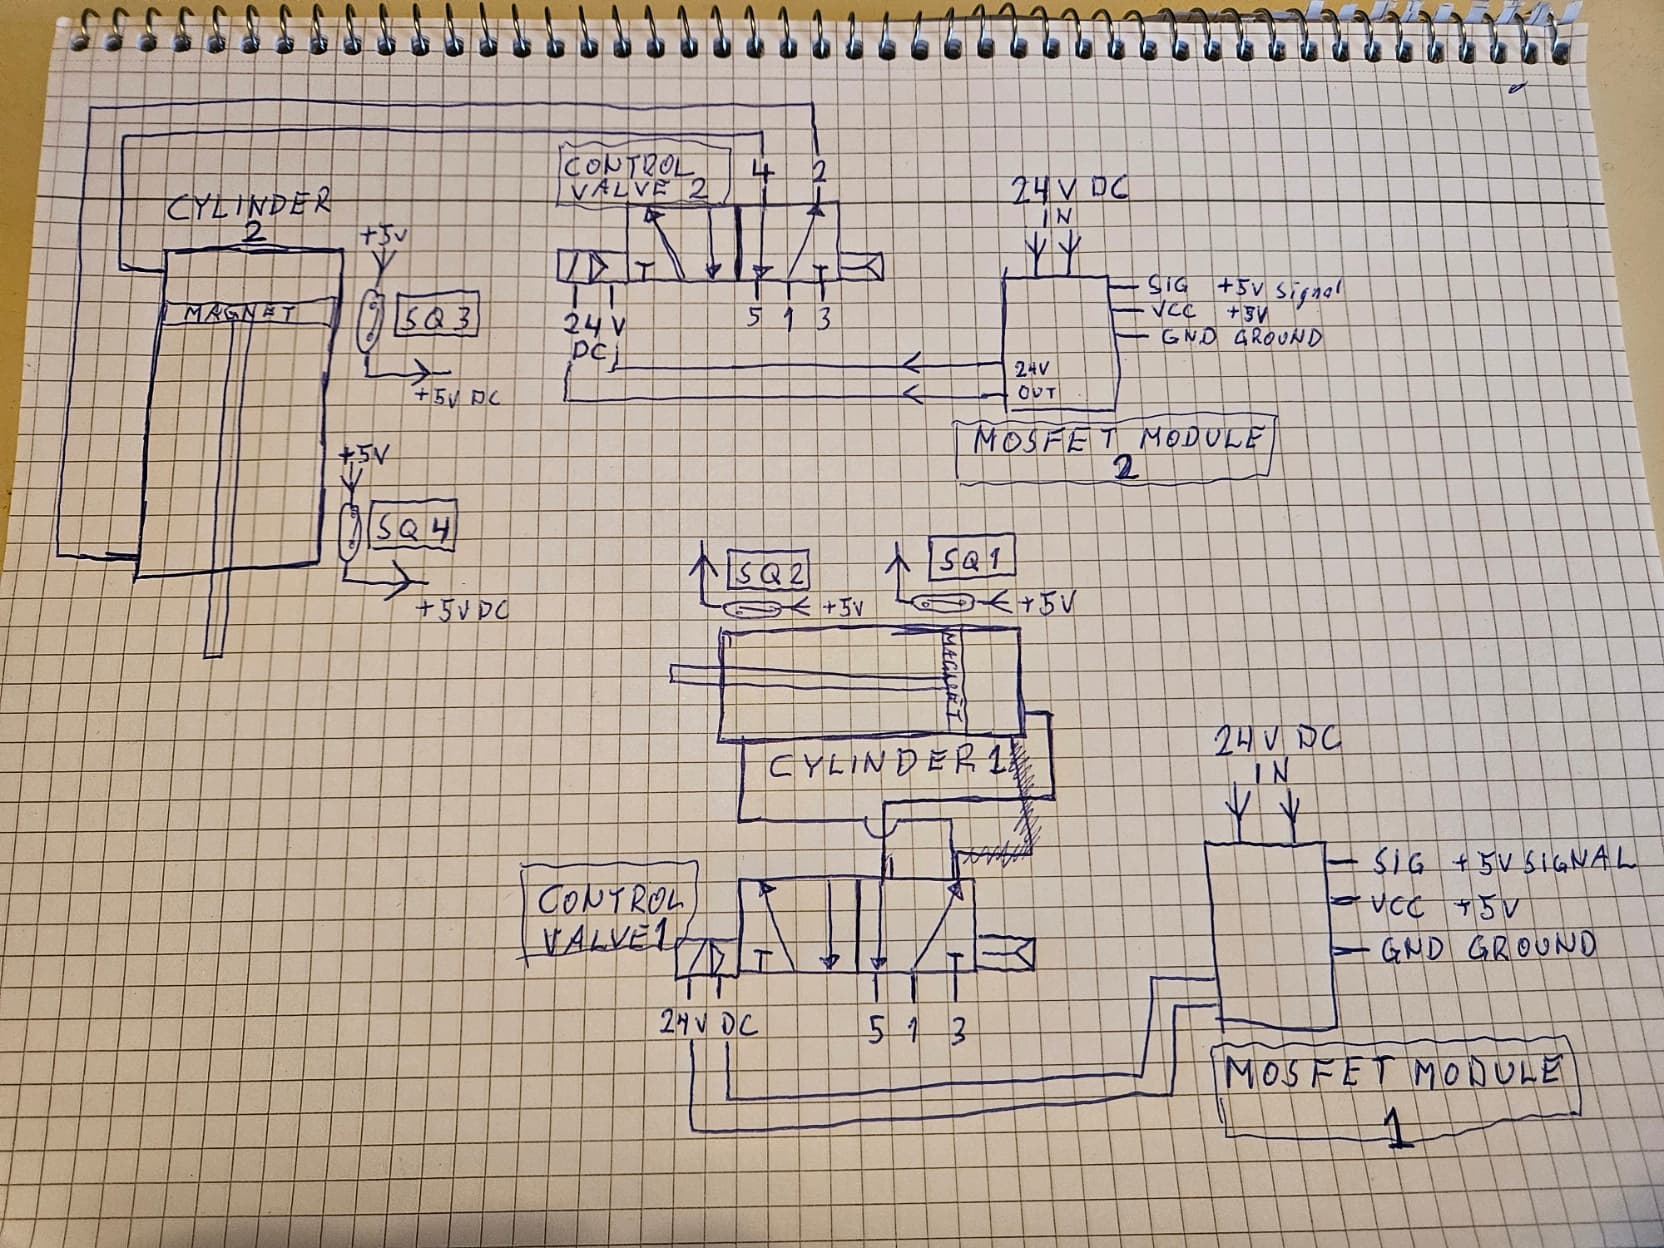 CONTROL
VALVE 2
4 2
CYLINDER
2
+5V
MAGNET
SQ3
+5V DC
24V
DC
5 1 3
24V DC
IN
SIG +5V Signal
VCC +5V
GND GROUND
24V
OUT
MOSFET MODULE
2
+5V
SQ4
+5VDC
SQ2
+5V
SQ1
+5V
MAGNET
CYLINDER 1
24V DC
IN
CONTROL
VALVE1
24V DC
5 1 3
SIG +5VSIGNAL
VCC +5V
GND GROUND
MOSFET MODULE
1